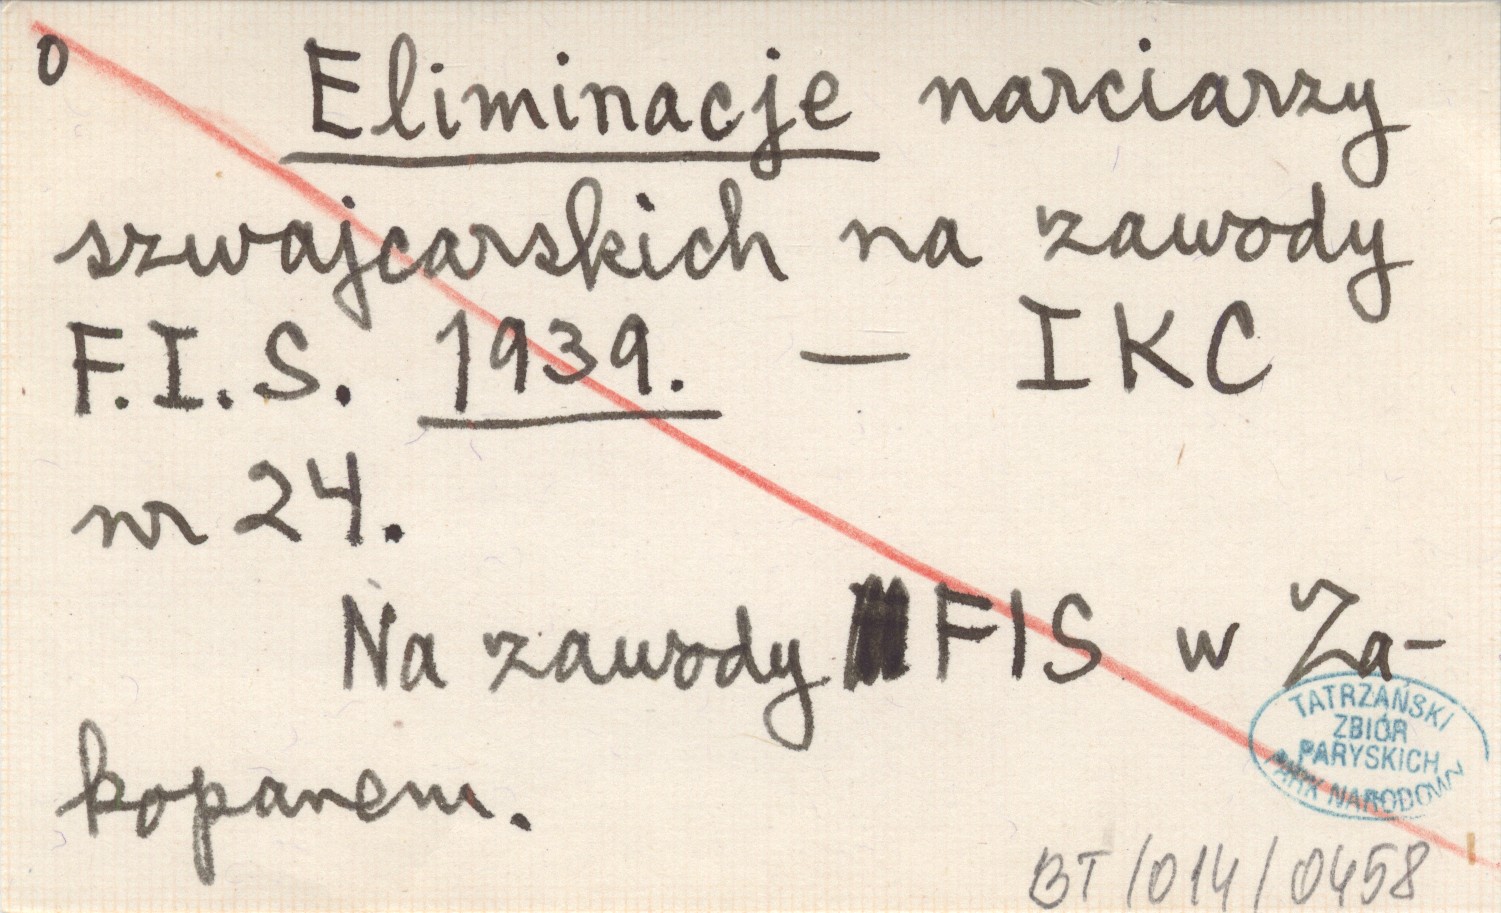 0
Eliminacje narciarzy
szwajcarskich na zawody
F.I.S. 1939. — IKC
nr 24.
Na zawody FIS w Za-
kopanem.
TATRZAŃSKI
ZBIÓR
PARYSKICH
PARK NARODOWY
BT/014/0458